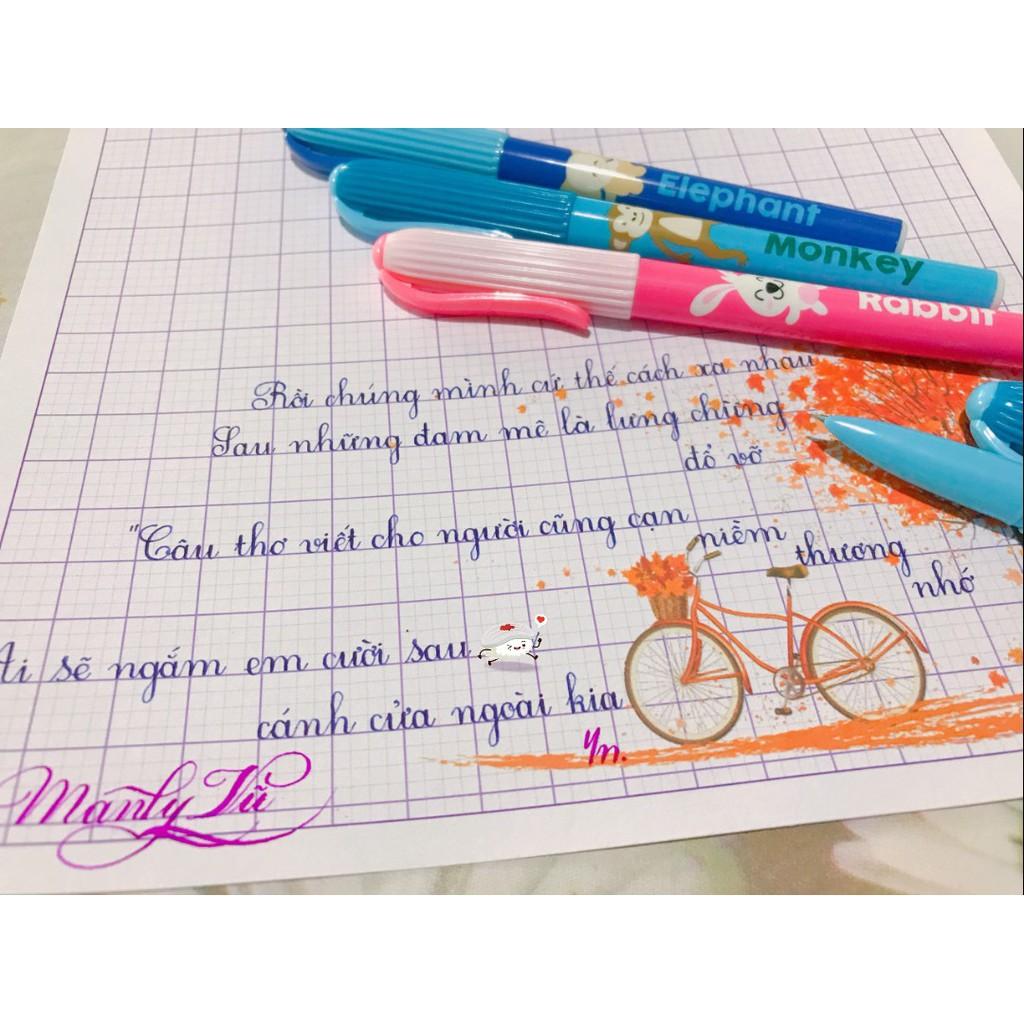 Elephant
Monkey
Rabbit
Rồi chúng mình cứ thế cách xa nhau
Sau những đam mê là lưng chừng
đổ vỡ
"Câu thơ viết cho người cũng cạn niềm thương
nhớ
Ai sẽ ngắm em cười sau
cánh cửa ngoài kia
Manly Vũ